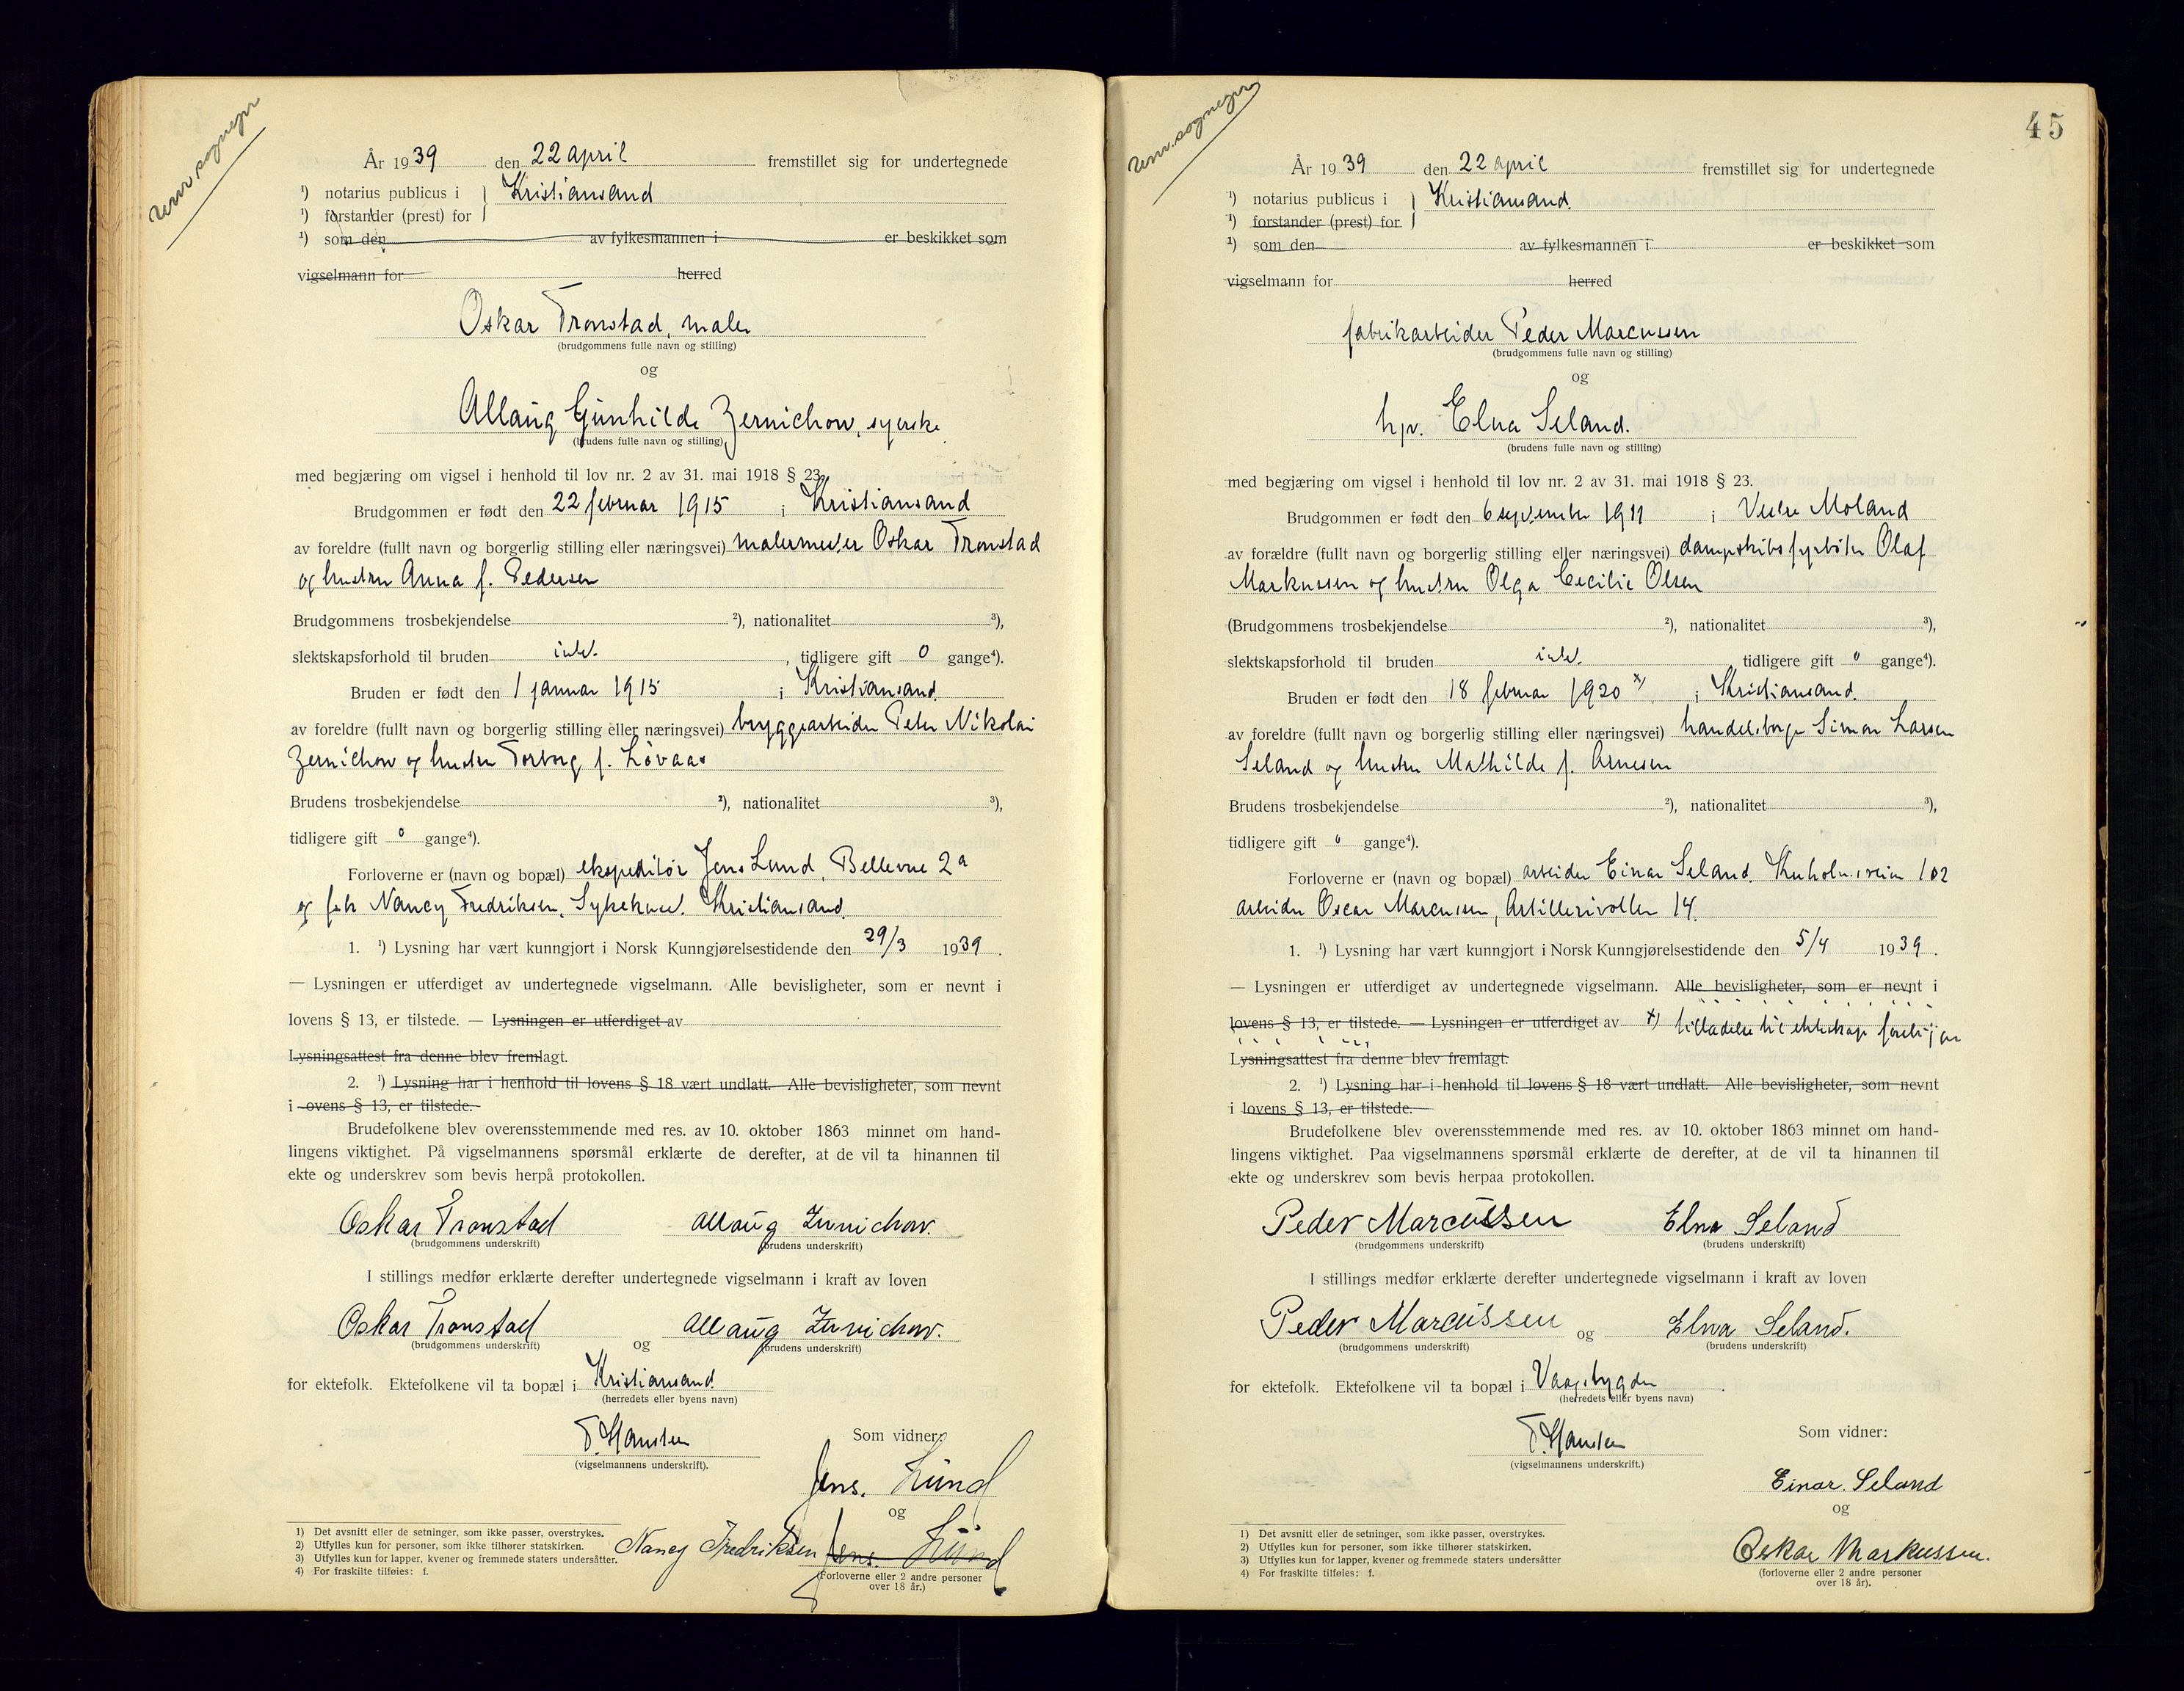 År 1939 den 22 april fremstillet sig for undertegnede
¹) notarius publicus i } Kristiansand
¹) forstander (prest) for
¹) som den av fylkesmannen i er beskikket som
vigselmann for herred
Oskar Tronstad, maler
(brudgommens fulle navn og stilling)
og
Allaug Gunhilde Zernichow, syerske
(brudens fulle navn og stilling)
med begjæring om vigsel i henhold til lov nr. 2 av 31. mai 1918 § 23.
Brudgommen er født den 22 februar 1915 i Kristiansand
av foreldre (fullt navn og borgerlig stilling eller næringsvei) malermester Oskar Tronstad
og hustru Anna f. Pedersen
Brudgommens trosbekjendelse ²), nationalitet ³),
slektskapsforhold til bruden intet. , tidligere gift 0 gange⁴).
Bruden er født den 1 januar 1915 i Kristiansand.
av foreldre (fullt navn og borgerlig stilling eller næringsvei) bryggearbeider Peter Nikolai
Zernichow og hustru Torborg f. Løvaas
Brudens trosbekjendelse ²), nationalitet ³),
tidligere gift 0 gange⁴).
Forloverne er (navn og bopæl) ekspeditør Jens Lund, Bellevue 2a
og frk Nancy Fredriksen, Sykehuset. Kristiansand.
1. ¹) Lysning har vært kunngjort i Norsk Kunngjørelsestidende den 29/3 1939.
— Lysningen er utferdiget av undertegnede vigselmann. Alle bevisligheter, som er nevnt i
lovens § 13, er tilstede. — Lysningen er utferdiget av
Lysningsattest fra denne blev fremlagt.
2. ¹) Lysning har i henhold til lovens § 18 vært undlatt. Alle bevisligheter, som nevnt
i ovens § 13, er tilstede.
Brudefolkene blev overensstemmende med res. av 10. oktober 1863 minnet om hand-
lingens viktighet. På vigselmannens spørsmål erklærte de derefter, at de vil ta hinannen til
ekte og underskrev som bevis herpå protokollen.
Oskar Tronstad Allaug Zernichow.
(brudgommens underskrift) (brudens underskrift)
I stillings medfør erklærte derefter undertegnede vigselmann i kraft av loven
Oskar Tronstad og Allaug Zernichow.
(brudgommens underskrift) (brudens underskrift)
for ektefolk. Ektefolkene vil ta bopæl i Kristiansand
(herredets eller byens navn)
T. Hansten Som vidner:
(vigselmannens underskrift).
Jens. Lund
og
Nancy Fredriksen Jens. Lund
(Forloverne eller 2 andre personer
over 18 år.)
1) Det avsnitt eller de setninger, som ikke passer, overstrykes.
2) Utfylles kun for personer, som ikke tilhører statskirken.
3) Utfylles kun for lapper, kvener og fremmede staters undersåtter.
4) For fraskilte tilføies: f.
45
År 1939 den 22 april fremstillet sig for undertegnede
¹) notarius publicus i } Kristiansand.
¹) forstander (prest) for
¹) som den av fylkesmannen i er beskikket som
vigselmann for herred
fabrikarbeider Peder Marcussen
(brudgommens fulle navn og stilling)
og
hpr. Elna Seland.
(brudens fulle navn og stilling)
med begjæring om vigsel i henhold til lov nr. 2 av 31. mai 1918 § 23.
Brudgommen er født den 6 september 1911 i Vestre Moland
av forældre (fullt navn og borgerlig stilling eller næringsvei) dampskibsfyrbøter Olaf
Markussen og hustru Olga Cecilie Olsen
(Brudgommens trosbekjendelse ²), nationalitet ³),
slektskapsforhold til bruden intet. tidligere gift 0 gange⁴).
Bruden er født den 18 februar 1920 x) i Kristiansand.
av foreldre (fullt navn og borgerlig stilling eller næringsvei) handelsborger Simon Larsen
Seland og hustru Mathilde f. Arnesen
Brudens trosbekjendelse ²), nationalitet ³),
tidligere gift 0 gange⁴).
Forloverne er (navn og bopæl) arbeider Einar Seland. Kuholmsveien 102
arbeider Oscar Marcussen, Artillerivollen 14.
1. ¹) Lysning har vært kunngjort i Norsk Kunngjørelsestidende den 5/4 1939.
— Lysningen er utferdiget av undertegnede vigselmann. Alle bevisligheter, som er nevnt i
lovens § 13, er tilstede. — Lysningen er utferdiget av x) tilladelse til ekteskap foreligger
Lysningsattest fra denne blev fremlagt.
2. ¹) Lysning har i henhold til lovens § 18 vært undlatt. Alle bevisligheter, som nevnt
i lovens § 13, er tilstede.
Brudefolkene blev overensstemmende med res. av 10. oktober 1863 minnet om hand-
lingens viktighet. Paa vigselmannens spørsmål erklærte de derefter, at de vil ta hinannen til
ekte og underskrev som bevis herpaa protokollen.
Peder Marcussen Elna Seland
(brudgommens underskrift) (brudens underskrift)
I stillings medfør erklærte derefter undertegnede vigselmann i kraft av loven
Peder Marcussen og Elna Seland.
(brudgommens underskrift) (brudens underskrift)
for ektefolk. Ektefolkene vil ta bopæl i Vaagsbygden.
(herredets eller byens navn)
T. Hansten Som vidner:
(vigselmannens underskrift.)
Einar. Seland
og
Oskar Markussen.
(forloverne eller 2 andre personer
over 18 år).
1) Det avsnitt eller de setninger, som ikke passer, overstrykes.
2) Utfylles kun for personer, som ikke tilhører statskirken.
3) Utfylles kun for lapper, kvener og fremmede staters undersåtter
4) For fraskilte tilføies: f.